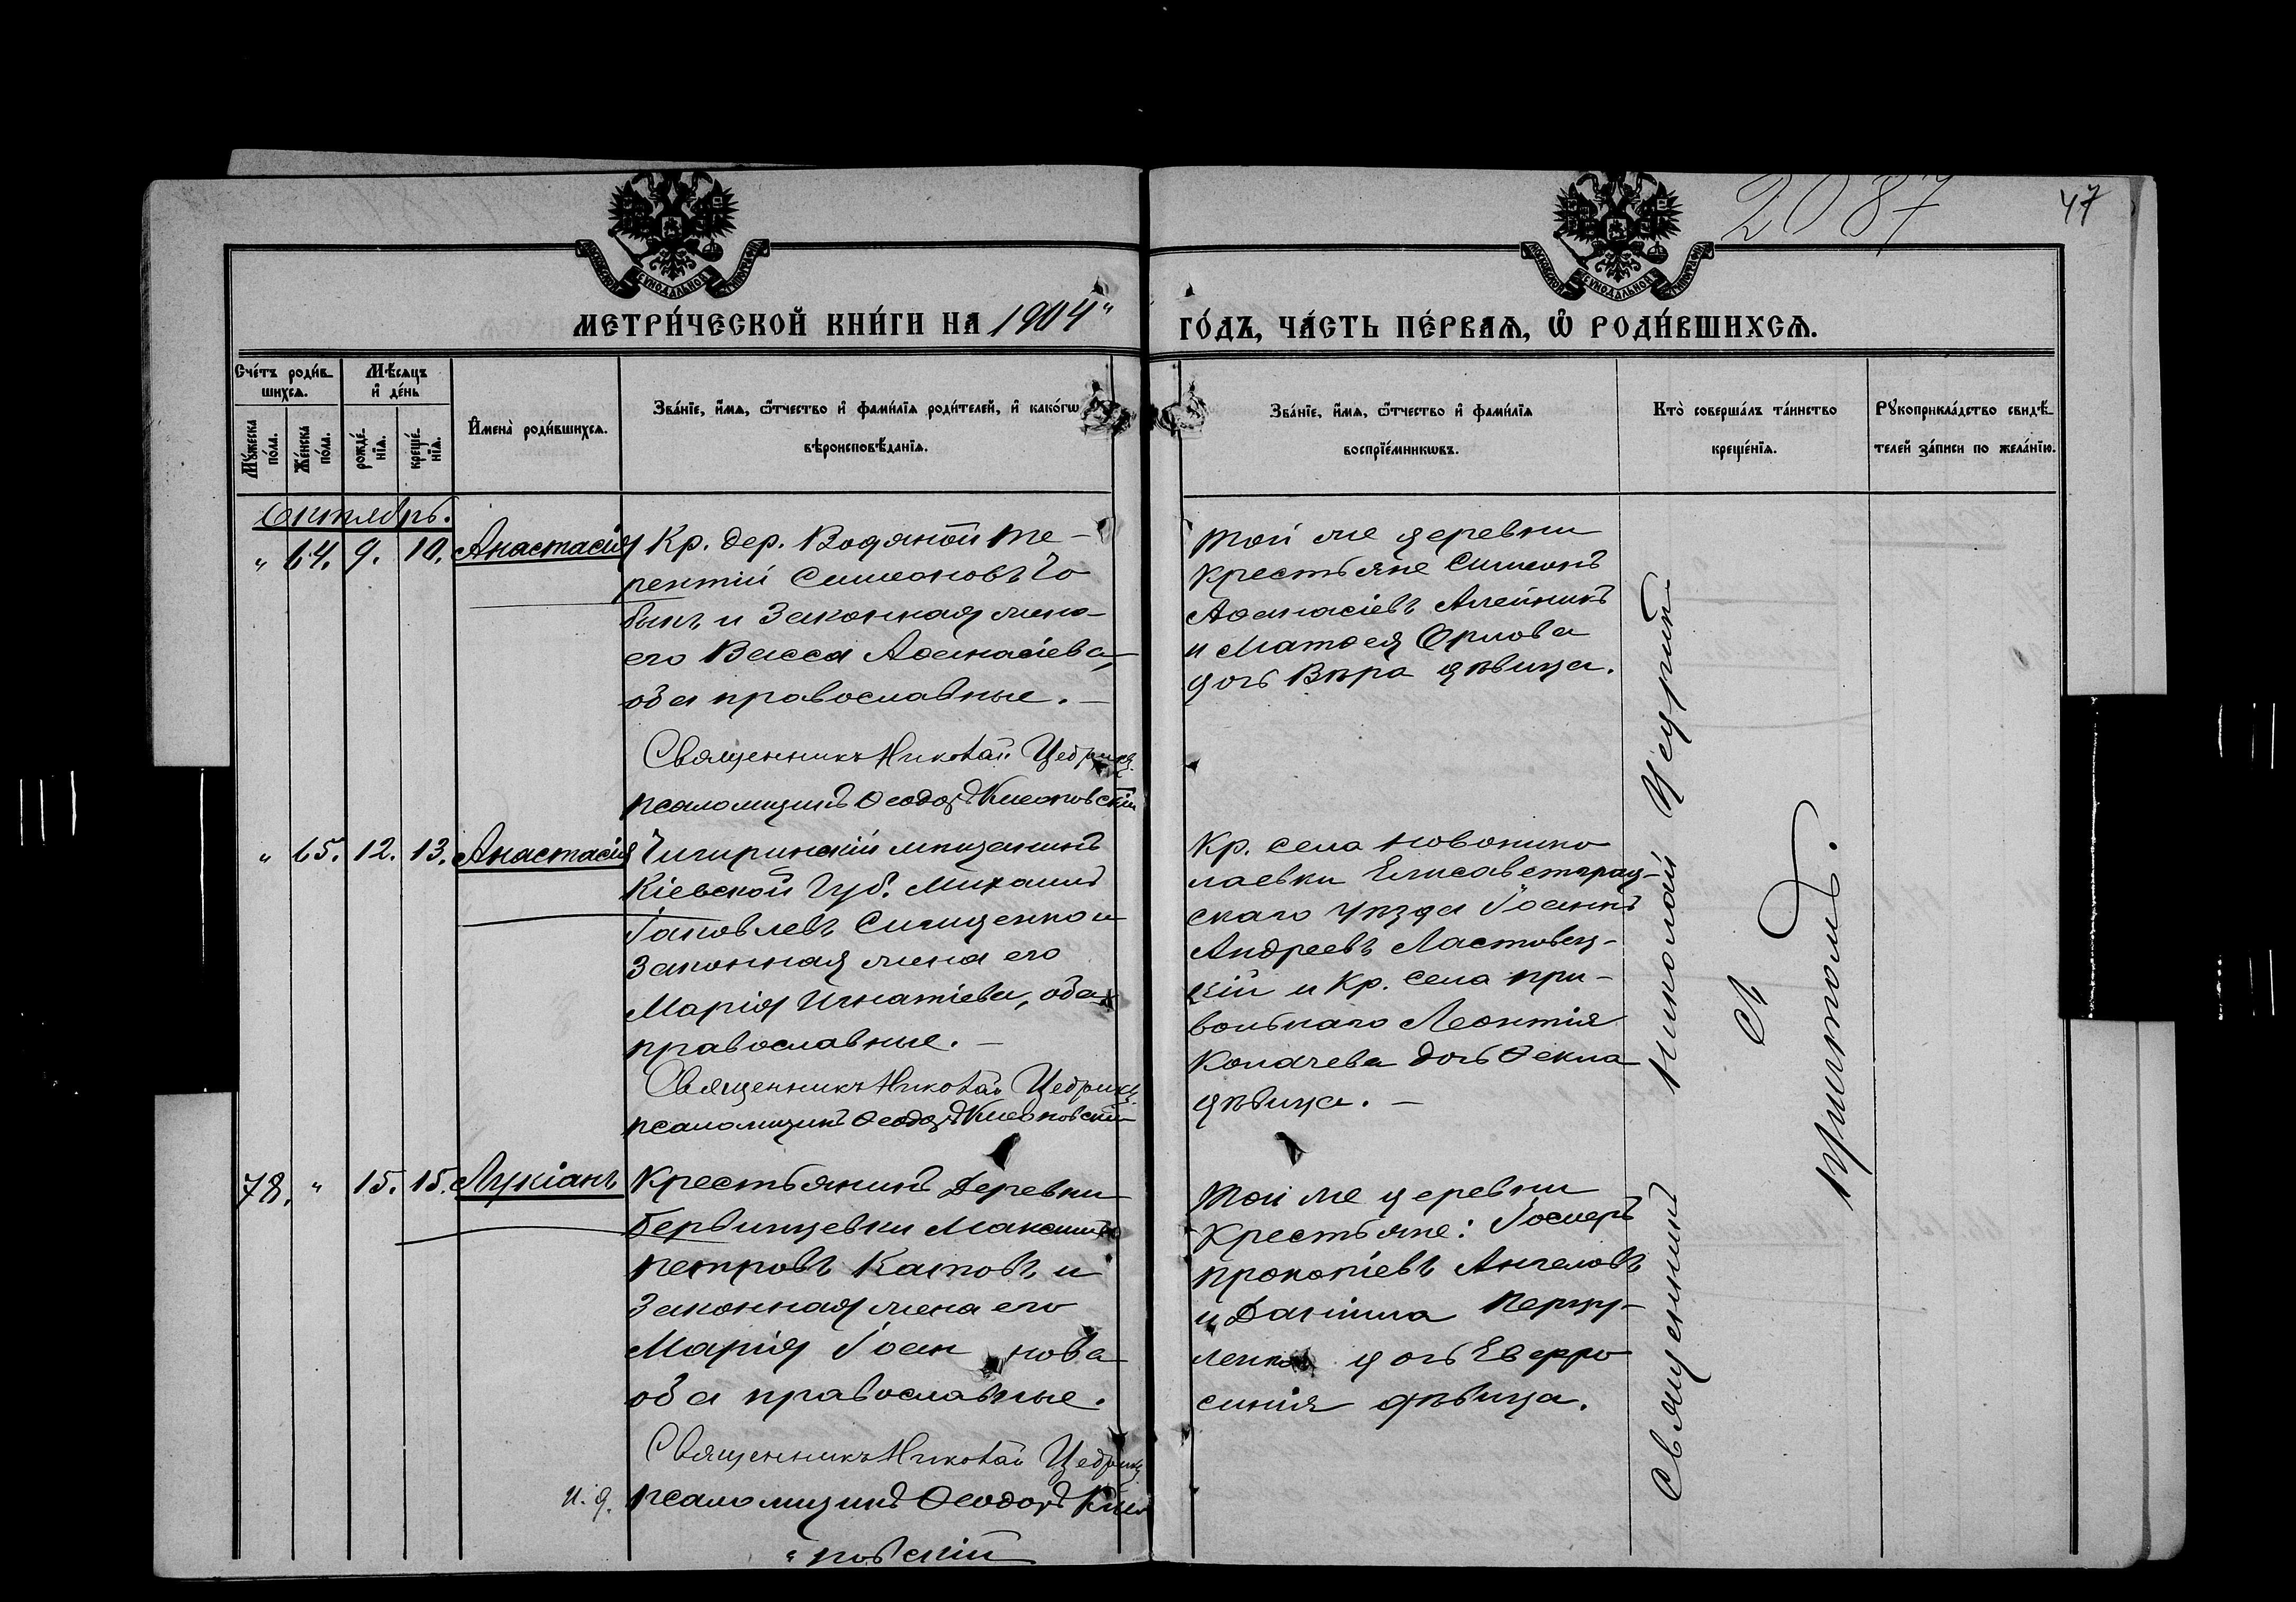 2087
47
МЕТРИ́ЧЕСКОЙ КНИ́ГИ НА 1904"
ГО́ДЪ, ЧА́СТЬ ПЕ́РВАѦ, Ѽ РОДИ́ВШИХСѦ.
Сче́тъ роди́в-
шихсѧ.
Мѣ́сѧцъ
и҆ де́нь
Му́жеска
по́ла.
Же́нска
по́ла.
рожде́-
нїѧ.
креще́-
нїѧ.
И҆мена̀ роди́вшихсѧ.
Зва́нїе, и҆́мѧ, ѻ҆́тчество и҆ фами́лїѧ роди́телей, и҆ како́гѡ
вѣроисповѣ́данїѧ.
Зва́нїе, и҆́мѧ, ѻ҆́тчество и҆ фами́лїѧ
воспрїе́мникѡвъ.
Кто̀ соверша́лъ та́инство
креще́нїѧ.
Рꙋкоприкла́дство свидѣ́-
телей за́писи по жела́нїю.
Октябрь.
" 64. 9. 10. Анастасія
Кр. дер. Водяной Те-
рентій Симеоновъ Го
бынъ и Законная жена
его Васса Аѳанасіева,
оба православные. –
Священникъ Николай Цедрикъ
псаломщикъ Ѳеодоръ
Той же деревни
крестьяне Симеонъ
Аѳанасіевъ Алейникъ
и Матѳея Орлова
дочь Вѣра дѣвица.
" 65. 12. 13. Анастасія
Чигиринскій мѣщанинъ
Кіевской Губ. Михаилъ
Іаковлевъ Сищенко и
Законная жена его
Марія Игнатіева, оба
православные. –
Священникъ Николай Цедрикъ
псаломщикъ Ѳеодоръ
Кр. села Новонико
лаевки Елисаветград-
скаго уѣзда Іоаннъ
Андреевъ Ластовец-
кій и Кр. села При-
вольнаго Леонтія
Колачева дочь Ѳекла
дѣвица. –
78. " 15. 15. Лукіанъ
Крестьянинъ Деревни
Бердинцевки Максимъ
Петровъ Катовъ и
Законная жена его
Марія Іоаннова
оба православные.
Священникъ Николай Цедрикъ
и. д. псаломщика Ѳеодоръ
Той же деревни
Крестьяне:
Прокопіевъ Ангеловъ
и Даніила
дочь Евфро
синія дѣвица.
Священникъ Николай Цедрикъ
съ
причтомъ.